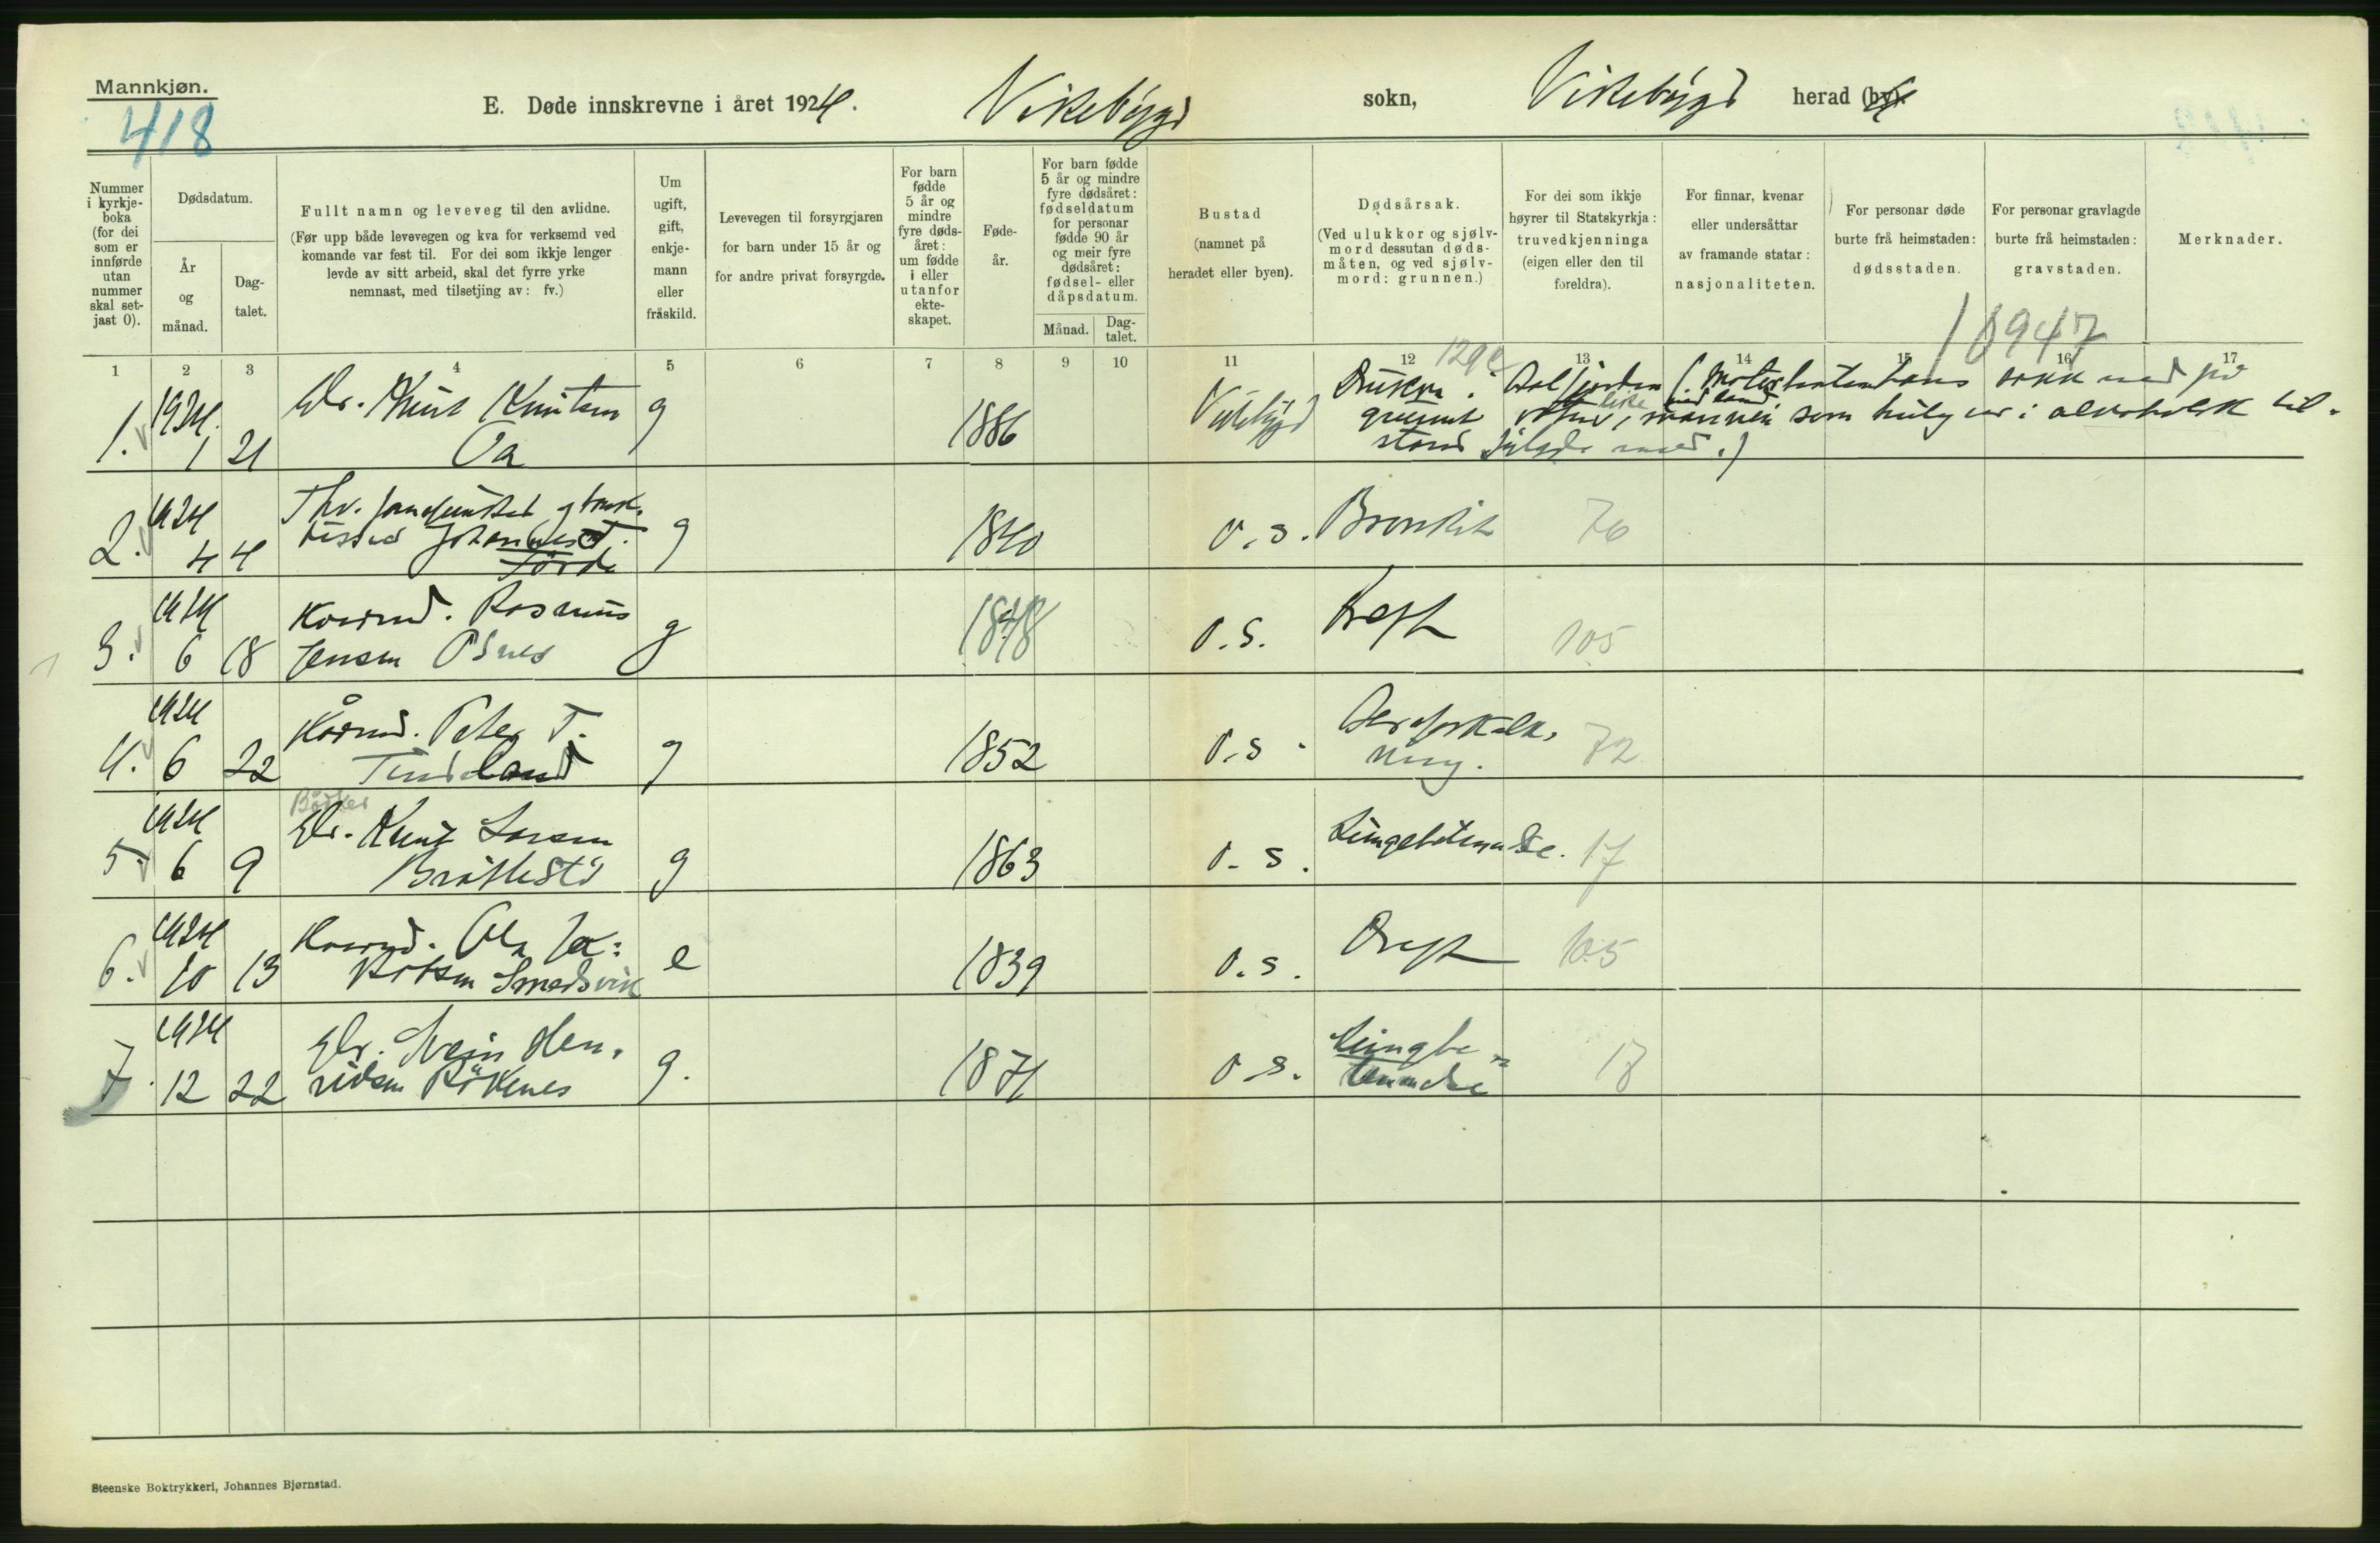 Mannkjøn.
418
E. Døde innskrevne i året 1924. Vikebygd sokn, Vikebygd herad (by).
Nummer i kyrkje-boka (for dei som er innførde utan nummer skal set-jast 0).
Dødsdatum.
År og månad.
Dag-talet.
Fullt namn og leveveg til den avlidne.
(Før upp både levevegen og kva for verksemd ved komande var fest til. For dei som ikkje lenger levde av sitt arbeid, skal det fyrre yrke nemnast, med tilsetjing av: fv.)
Um ugift, gift, enkje-mann eller fråskild.
Levevegen til forsyrgjaren for barn under 15 år og for andre privat forsyrgde.
For barn fødde 5 år og mindre fyre døds-året: um fødde i eller utanfor ekte-skapet.
Føde-år.
For barn fødde 5 år og mindre fyre dødsåret: fødseldatum for personar fødde 90 år og meir fyre dødsåret: fødsel- eller dåpsdatum.
Månad.
Dag-talet.
Bustad (namnet på heradet eller byen).
Dødsårsak.
(Ved ulukkor og sjølv-mord dessutan døds-måten, og ved sjølv-mord: grunnen.)
For dei som ikkje høyrer til Statskyrkja: truvedkjenninga (eigen eller den til foreldra).
For finnar, kvenar eller undersåttar av framande statar: nasjonaliteten.
For personar døde burte frå heimstaden: dødsstaden.
For personar gravlagde burte frå heimstaden: gravstaden.
Merknader.
10947
1 2 3 4 5 6 7 8 9 10 11 12 13 14 15 16 17
1924.
1. 1 21 Knut Knutsen g 1886 Vikebygd
som
stand fylgde med.)
1924
2. 4 4 Johannes T. g 1840 o. s. Bronkit 76
1924
3. 6 18 Rasmus
Jensen Osnes g 1848 o. s. 105
1924
4. 6 22 Kårmd. Peter T.
Tindeland g 1852 o. s. 72
Bødker
1924
5. 6 9 Knut Larsen
g 1863 o. s. 17
1924
6. 10 13 Ola Ja=
kobsen Smedsvik e 1839 o. s. 105
1924
7. 12 22 Svein Hen.
riksen Røkenes g. 1871 o. s. Lungbe=
tennelse 18
Steenske Boktrykkeri, Johannes Bjørnstad.